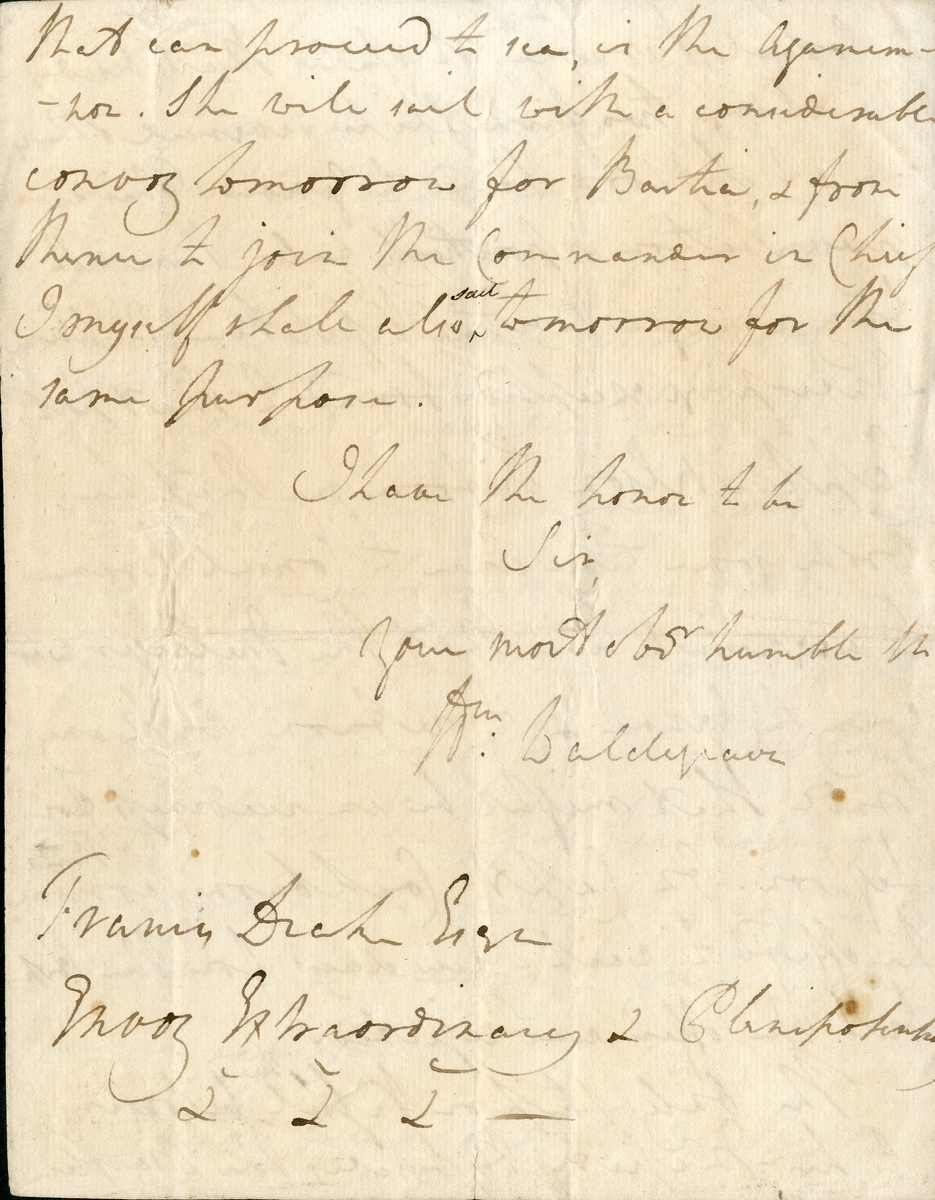 that can proceed to sea, is the Agamem-
-non. She will sail with a considerable
convoy tomorrow for Bastia, & from
thence to join the Commander in Chief
I myself shall also, sail tomorrow for the
same purpose.
I have the honor to be
Sir,
Your most obdt humble
Wm: Waldegrave
Francis Drake Esqr
Envoy Extraordinary & Plenipotentiary
& & & —